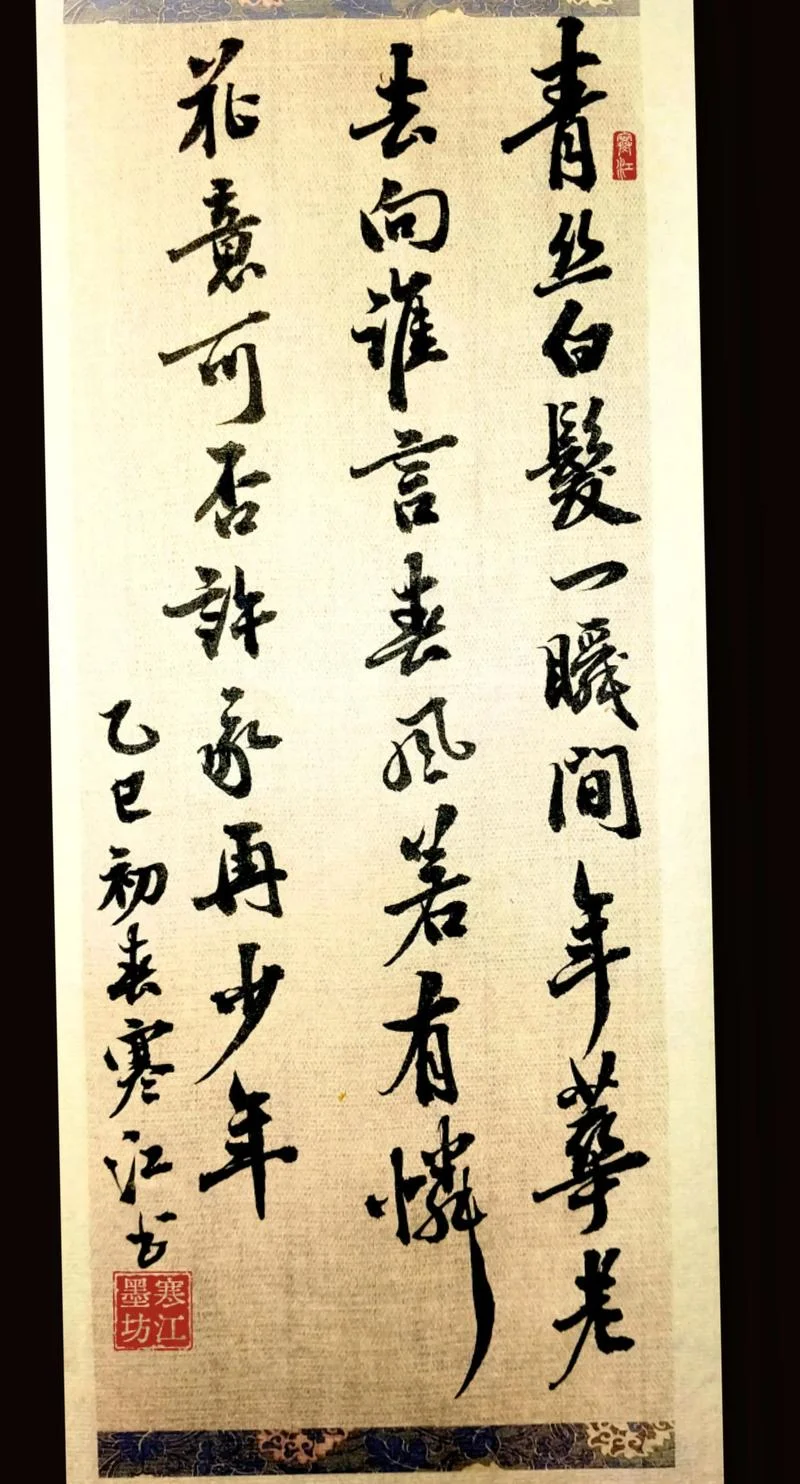 青丝白髮一瞬間年華老
去向谁言春风若有憐
花意可否許我再少年
乙巳初春寒江书
寒江
寒江墨坊